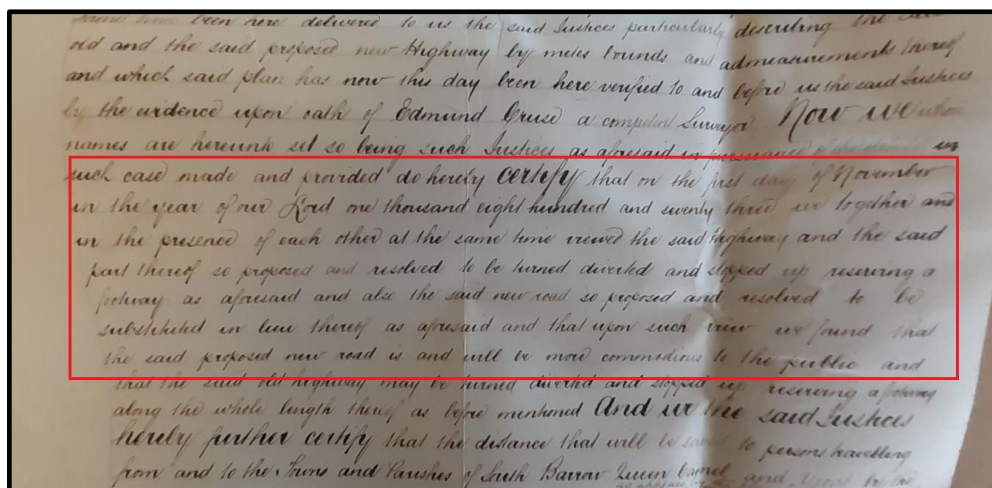 same time been here delivered to us the said Justices particularly describing the said
old and the said proposed new Highway by metes bounds and admeasurements thereof
and which said place has now this day been here verified to and before us the said Justices
by the evidence upon oath of Edmund Cruse a competent Surveyor Now we whose
names are hereunto set so being such Justices as aforesaid in pursuance of the
such case made and provided do hereby certify that on the first day of November
in the year of our Lord one thousand eight hundred and seventy three we together and
in the presence of each other at the same time viewed the said Highway and the said
part thereof so proposed and resolved to be turned diverted and stopped up reserving a
footway as aforesaid and also the said new road so proposed and resolved to be
substituted in lieu thereof as aforesaid and that upon such view we found that
the said proposed new road is and will be more commodious to the public and
that the said old highway may be turned diverted and stopped up reserving a footway
along the whole length thereof as before mentioned And we the said Justices
hereby further certify that the distance that will be saved to persons travelling
from and to the Towns and Parishes of South Barrow Queen Camel and